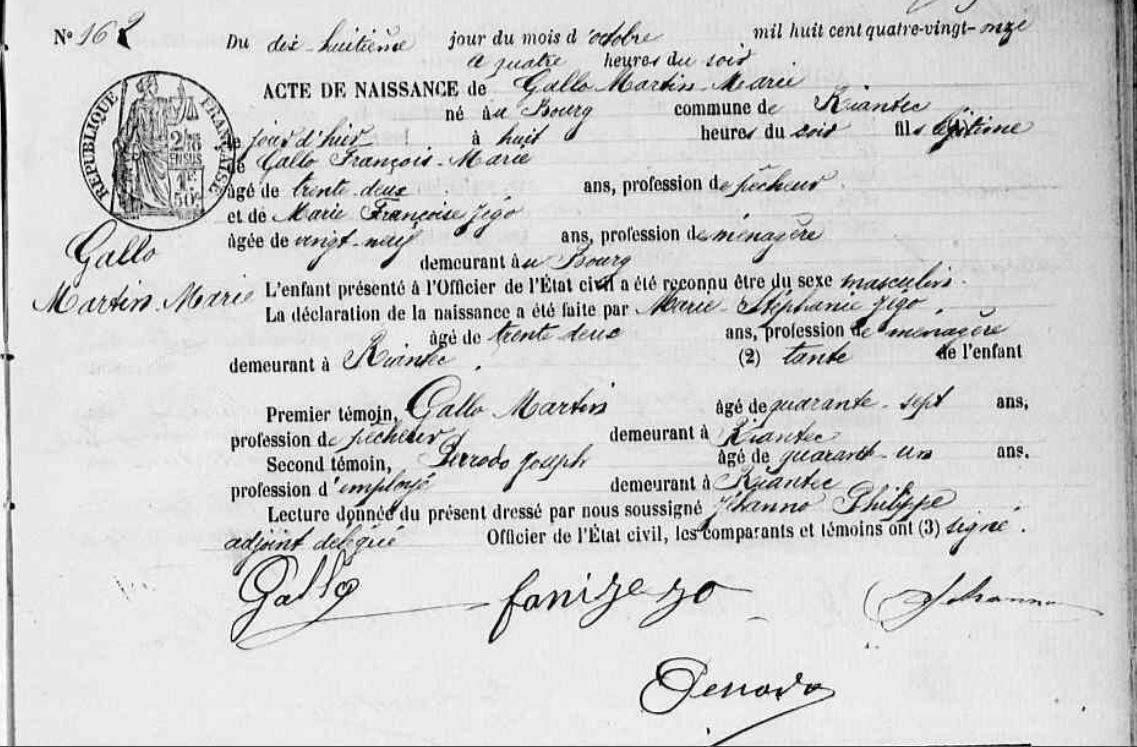 N° 162 Du dix-huitième jour du mois d'octobre mil huit cent quatre-vingt-onze
à quatre heures du soir
ACTE DE NAISSANCE de Gallo Martin-Marie
né au Bourg commune de Riantec
ce jour d'hui à huit heures du soir fils légitime
de Gallo François-Marie
âgé de trente-deux ans, profession de pêcheur
et de Marie Françoise Jégo
âgée de vingt-neuf ans, profession de ménagère
demeurant au Bourg
RÉPUBLIQUE FRANÇAISE
2/10
EN SUS
1 Fc
50c
Gallo
Martin-Marie
L'enfant présenté à l'Officier de l'État civil a été reconnu être du sexe masculin.
La déclaration de la naissance a été faite par Marie-Stéphanie Jégo,
âgé de trente-deux ans, profession de ménagère
demeurant à Riantec, (2) tante de l'enfant
Premier témoin, Gallo Martin âgé de quarante-sept ans,
profession de pêcheur demeurant à Riantec
Second témoin, Perrodo Joseph âgé de quarant-un ans.
profession d'employé demeurant à Riantec
Lecture donnée du présent dressé par nous soussigné Jéhanno Philippe
adjoint délégué Officier de l'État civil, les comparants et témoins ont (3) signé.
Gallo Jehanno
Perrodo